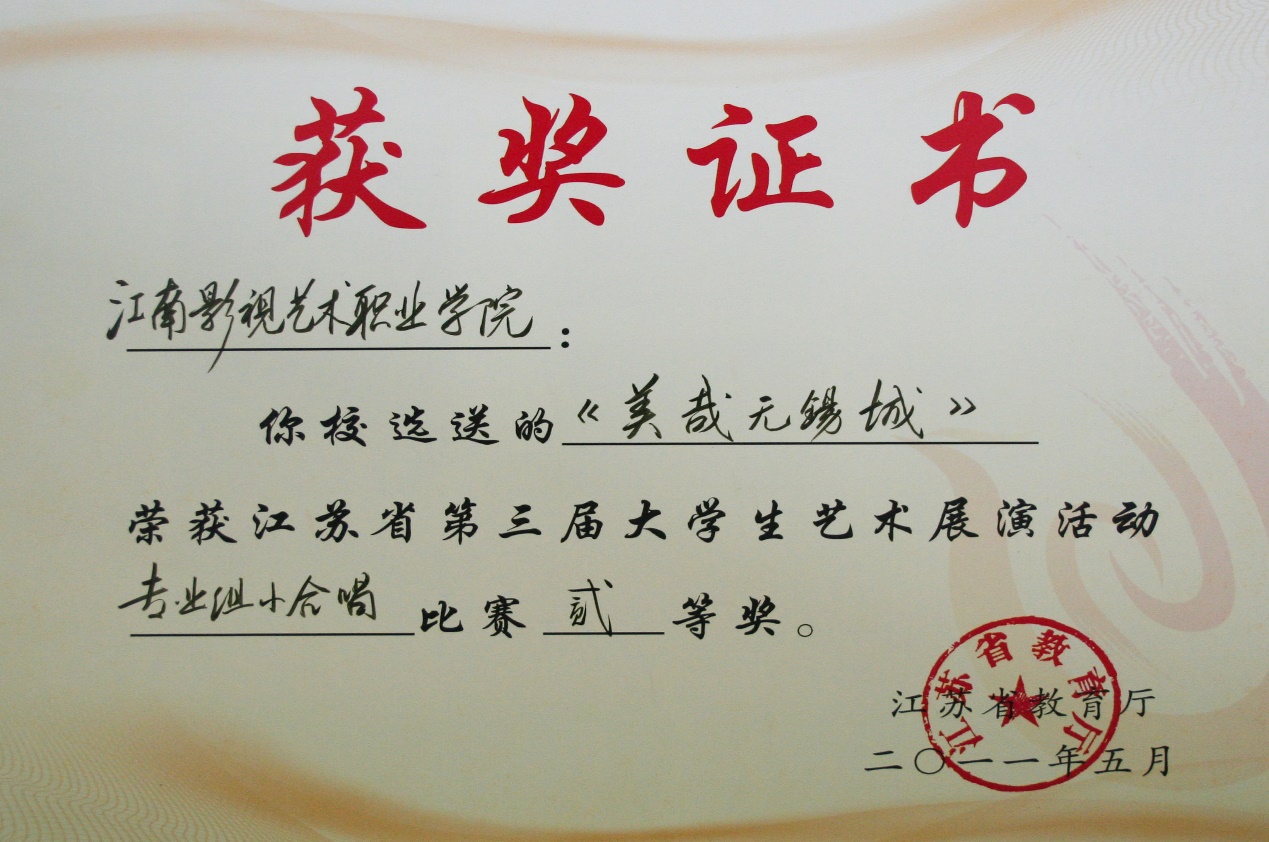 获奖证书
江南影视艺术职业学院：
你校选送的《美哉无锡城》
荣获江苏省第三届大学生艺术展演活动
专业组小合唱比赛贰等奖。
江苏省教育厅
江苏省教育厅
二〇一一年五月